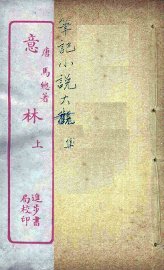 筆記小說大觀
唐 馬總著
意林 上
進步書
局校印